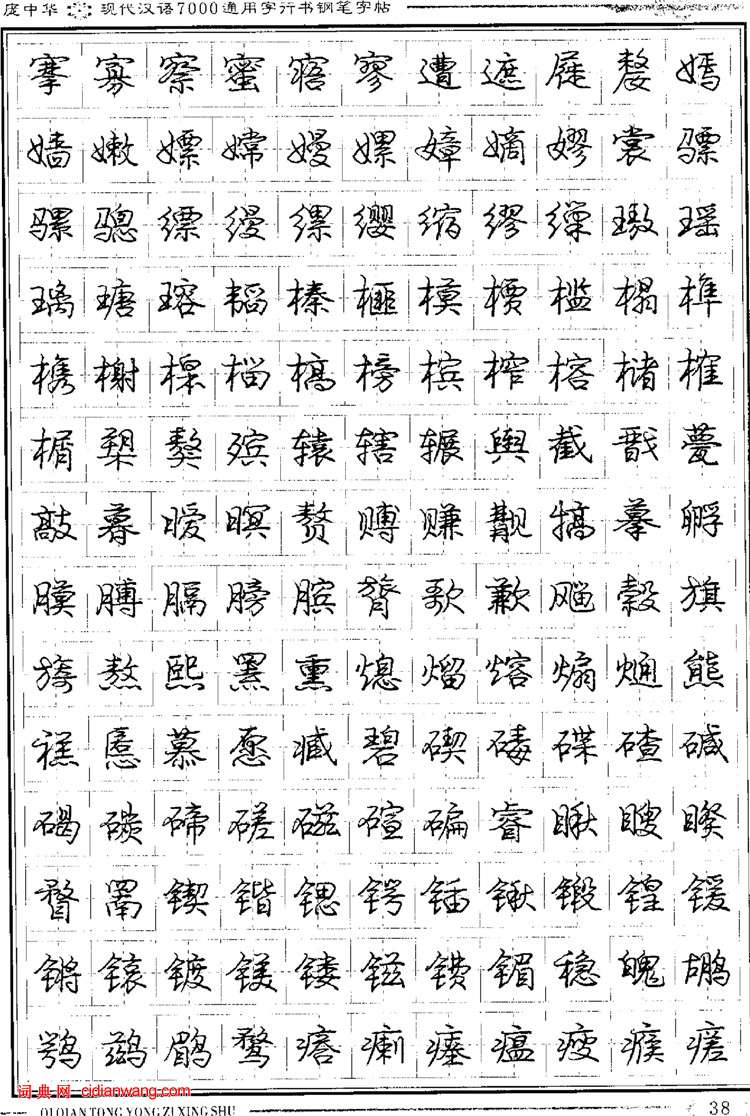 庞中华 现代汉语7000通用字行书钢笔字帖
搴寡察蜜寤寥遭遮屣嫠嫣
嫱嫩嫖嫦嫚嫘嫜嫡嫪裳骠
骡骢缥缦缧缨缩缪缫璈瑶
璃瑭瑢韬榛榧模槚槛榻榫
槜榭槔榴槁榜槟榨榕槠榷
榍榘獒殡辕辖辗舆截戬甍
敲暮暧暝赘赙赚觏犒摹孵
膜膊膈膀膑膂歌歉飗榖旗
旖熬熙罴熏熄熘熔煽熥熊
禚慝慕愿臧碧碶碡碟碴碱
碣碳碲磋磁碹碥睿瞅瞍睽
瞀罱锲锴锶锷锸锹锻锽锾
锵锿镀镁镂镃镄镅稳魄鹕
鹗鹚鹛鹜瘩瘌瘗瘟瘦瘊瘥
词典网 cidianwang.com
QIQIANTONG YONG ZI XING SHU 38